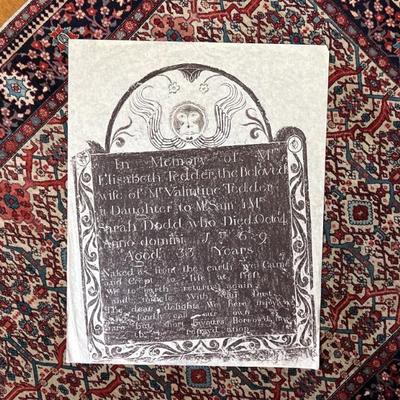 In Memory of Mrs
Elisabeth Tedder, the Beloved
wife of Mr Valintine Tedder
& Daughter to Mr Sam & Mrs
Sarah Dodd who Died Octo 4
Anno domini 1769
Aged 33 Years
Naked as from the earth we Came
and Crept to life at first
We to the earth return again
and With our Dust
The dear delights We here enjoy
& fondly call our own
are but short favours Borrow'd now
to be repaid anon